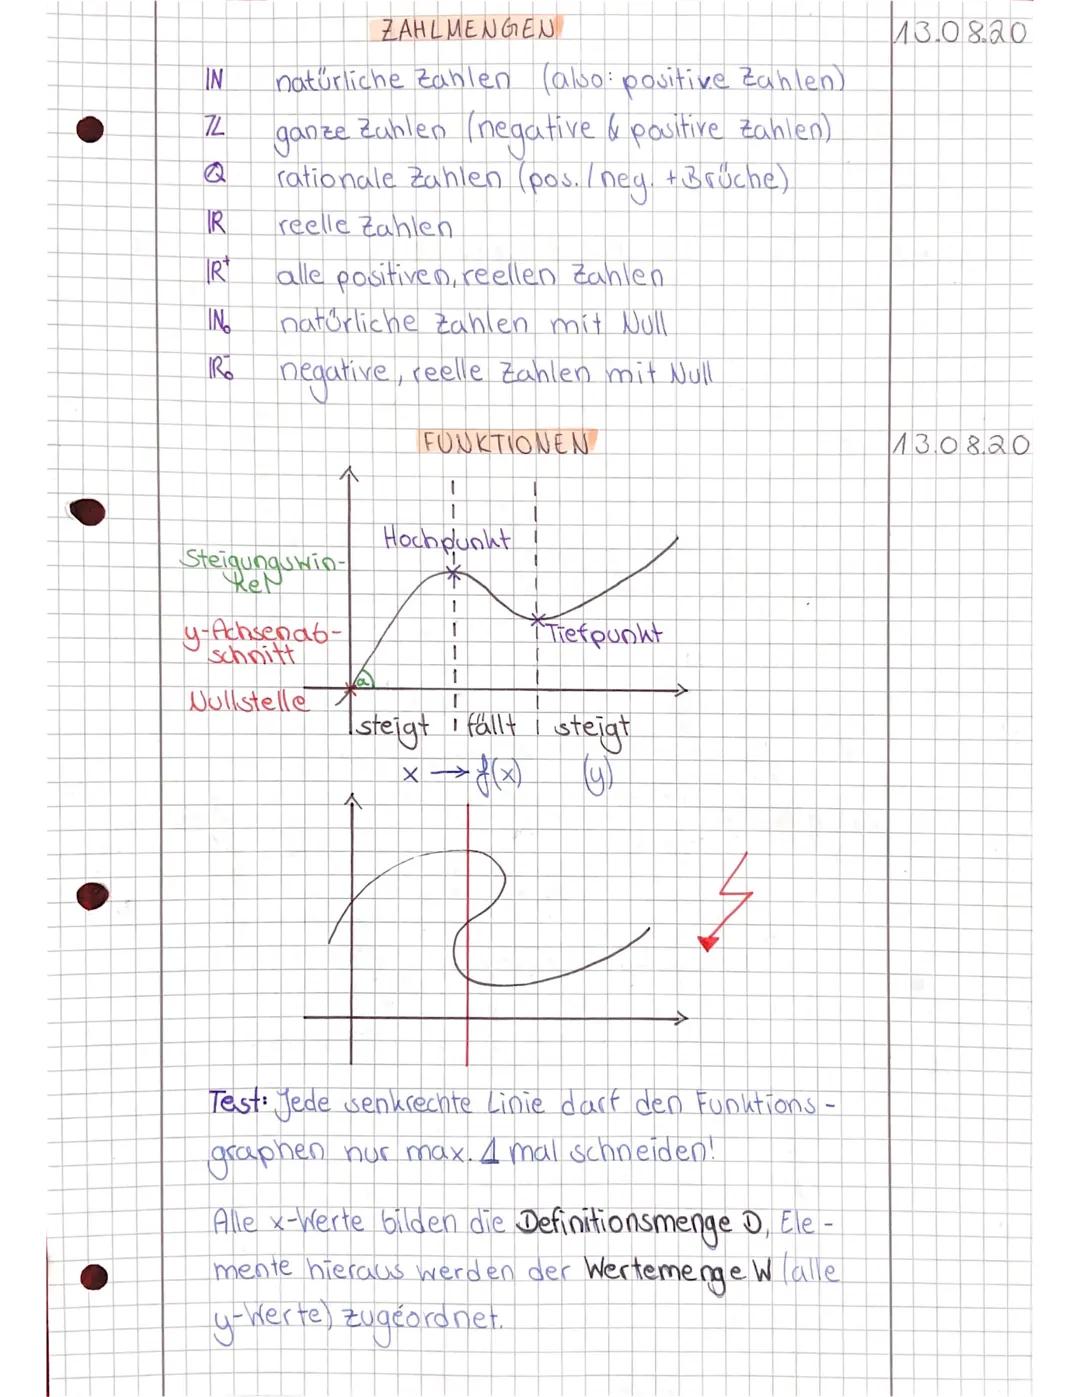 ZAHLMENGEN 13.08.20
ℕ natürliche Zahlen (also: positive Zahlen)
ℤ ganze Zahlen (negative & positive Zahlen)
ℚ rationale Zahlen (pos./neg. + Brüche)
ℝ reelle Zahlen
ℝ⁺ alle positiven, reellen Zahlen
ℕ₀ natürliche Zahlen mit Null
ℝ₀⁻ negative, reelle Zahlen mit Null
FUNKTIONEN 13.08.20
Hochpunkt
Steigungswin-
kel
y-Achsenab-
schnitt
Tiefpunkt
a
Nullstelle
steigt fällt steigt
x → f(x) (y)
Test: Jede senkrechte Linie darf den Funktions-
graphen nur max. 1 mal schneiden!
Alle x-Werte bilden die Definitionsmenge D, Ele-
mente hieraus werden der Wertemenge W (alle
y-Werte) zugeordnet.